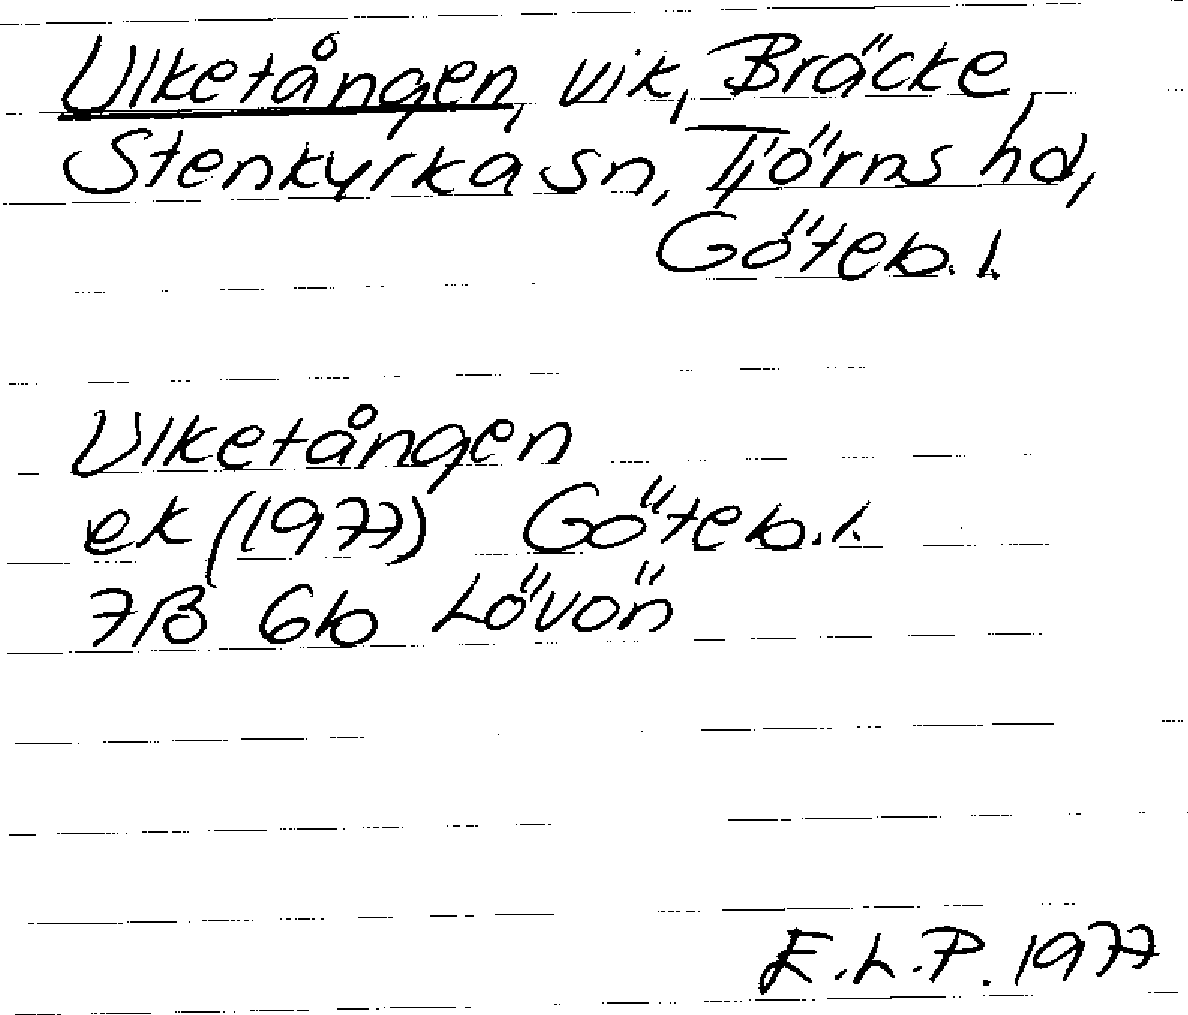 Ulketången, vik, Bräcke,
Stenkyrka sn, Tjörns hd,
Göteb. l.
Ulketången
ek (1977) Göteb. l.
7B 6b Lövön
E.L.P. 1977